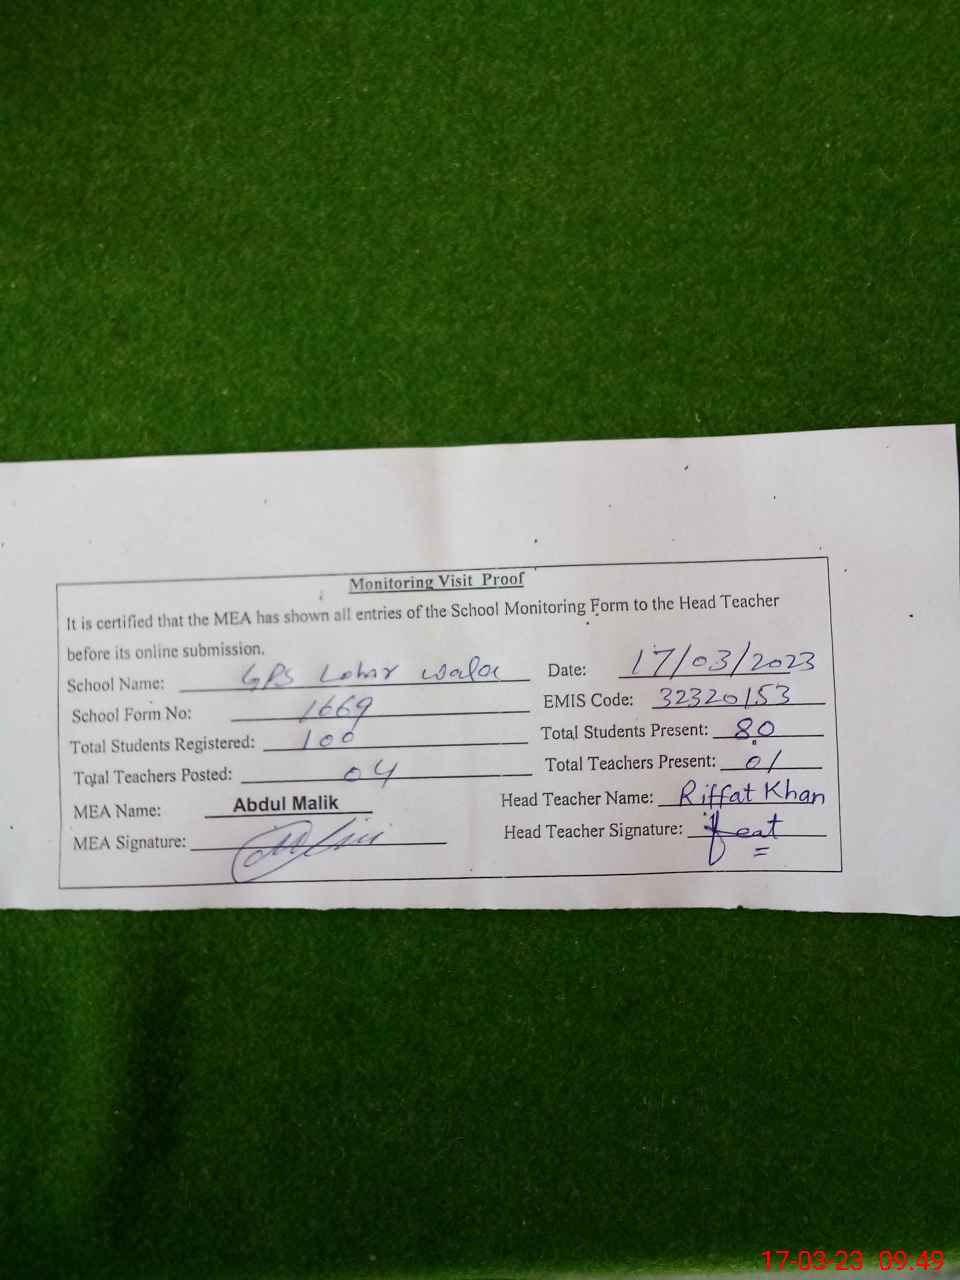 Monitoring Visit Proof
It is certified that the MEA has shown all entries of the School Monitoring Form to the Head Teacher
before its online submission.
School Name: GPS Lohar wala Date: 17/03/2023
School Form No: 1669 EMIS Code: 32320153
Total Students Registered: 100 Total Students Present: 80
Total Teachers Posted: 04 Total Teachers Present: 01
MEA Name: Abdul Malik Head Teacher Name: Riffat Khan
MEA Signature: Head Teacher Signature:
17-03-23 09:49